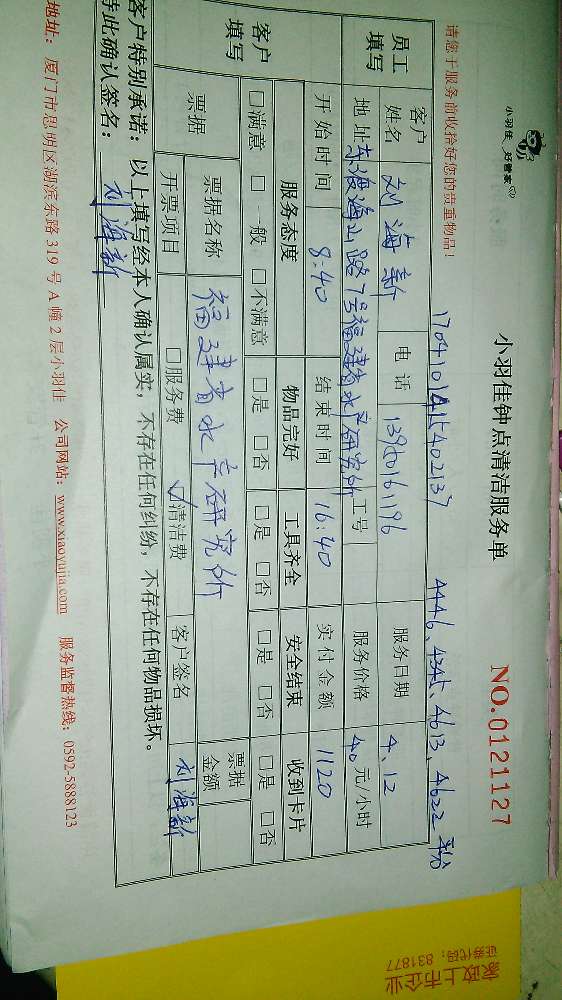 小羽佳 好管家
小羽佳钟点清洁服务单
NO.0121127
请您于服务前收拾好您的贵重物品!
4446、4345、4613、4622
员工填写
客户姓名 刘海新 电话 13950161196 服务日期 4.12
地址 东渡海山路7号福建省水产研究所 工号 服务价格 40元/小时
开始时间 8:40 结束时间 16:40 实付金额 1120
客户填写
服务态度 物品完好 工具齐全 安全结束 收到卡片
□满意 □一般 □不满意 □是 □否 □是 □否 □是 □否 □是 □否
票据 票据名称 福建省水产研究所 票据金额
开票项目 □服务费 ✓清洁费 客户签名 刘海新
客户特别承诺:以上填写经本人确认属实,不存在任何纠纷,不存在任何物品损坏。
特此确认签名: 刘海新
地址:厦门市思明区湖滨东路319号A幢2层小羽佳 公司网站:www.xiaoyujia.com 服务监督热线:0592-5888123
家政上市企业
证券代码:831877